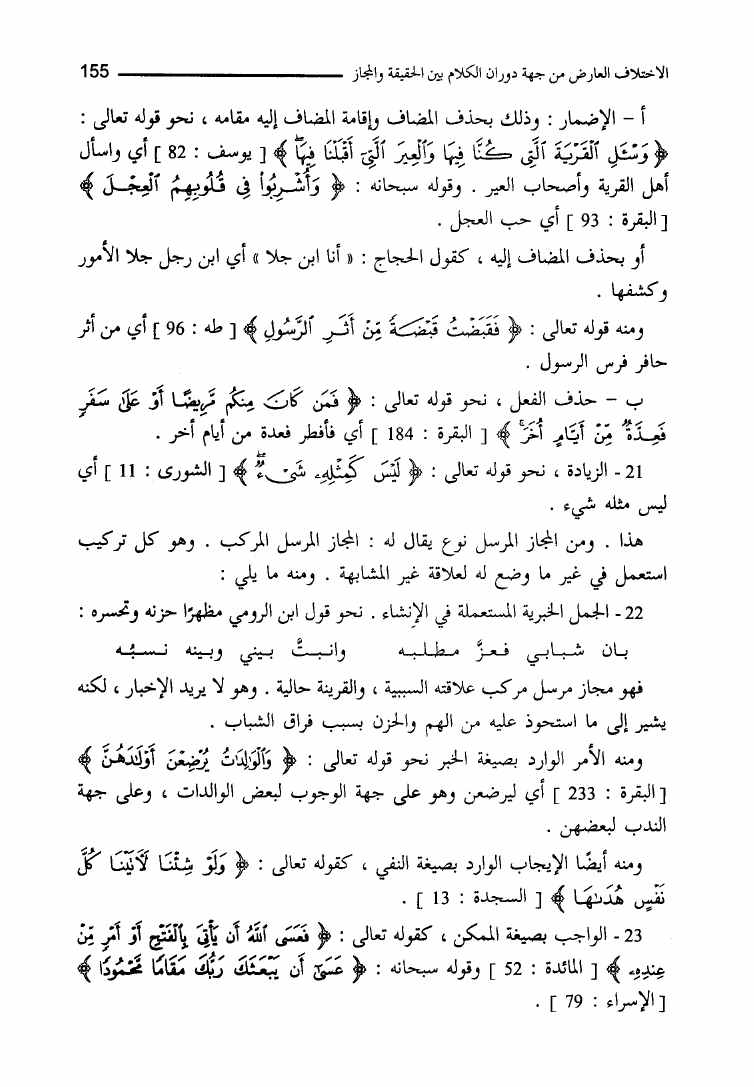 الاختلاف العارض من جهة دوران الكلام بين الحقيقة والمجاز 155
أ - الإضمار : وذلك بحذف المضاف وإقامة المضاف إليه مقامه ، نحو قوله تعالى :
﴿ وَسْـَٔلِ ٱلْقَرْيَةَ ٱلَّتِى كُنَّا فِيهَا وَٱلْعِيرَ ٱلَّتِىٓ أَقْبَلْنَا فِيهَاۖ ﴾ [ يوسف : 82 ] أي واسأل
أهل القرية وأصحاب العير . وقوله سبحانه : ﴿ وَأُشْرِبُوا۟ فِى قُلُوبِهِمُ ٱلْعِجْلَ ﴾
[ البقرة : 93 ] أي حب العجل .
أو بحذف المضاف إليه ، كقول الحجاج : « أنا ابن جلا » أي ابن رجل جلا الأمور
وكشفها .
ومنه قوله تعالى : ﴿ فَقَبَضْتُ قَبْضَةً مِّنْ أَثَرِ ٱلرَّسُولِ ﴾ [ طه : 96 ] أي من أثر
حافر فرس الرسول .
ب - حذف الفعل ، نحو قوله تعالى : ﴿ فَمَن كَانَ مِنكُم مَّرِيضًا أَوْ عَلَىٰ سَفَرٍ
فَعِدَّةٌ مِّنْ أَيَّامٍ أُخَرَۚ ﴾ [ البقرة : 184 ] أي فأفطر فعدة من أيام أخر .
21 - الزيادة ، نحو قوله تعالى : ﴿ لَيْسَ كَمِثْلِهِۦ شَىْءٌۖ ﴾ [ الشورى : 11 ] أي
ليس مثله شيء .
هذا . ومن المجاز المرسل نوع يقال له : المجاز المرسل المركب . وهو كل تركيب
استعمل في غير ما وضع له لعلاقة غير المشابهة . ومنه ما يلي :
22 - الجمل الخبرية المستعملة في الإنشاء . نحو قول ابن الرومي مظهرًا حزنه وتحسره :
بـان شـبـابـي فـعـزَّ مـطـلـبـه وانـبـتَّ بـيـني وبـينه نـسـبُـه
فهو مجاز مرسل مركب علاقته السببية ، والقرينة حالية . وهو لا يريد الإخبار ، لكنه
يشير إلى ما استحوذ عليه من الهم والحزن بسبب فراق الشباب .
ومنه الأمر الوارد بصيغة الخبر نحو قوله تعالى : ﴿ وَٱلْوَٰلِدَٰتُ يُرْضِعْنَ أَوْلَٰدَهُنَّ ﴾
[ البقرة : 233 ] أي ليرضعن وهو على جهة الوجوب لبعض الوالدات ، وعلى جهة
الندب لبعضهن .
ومنه أيضًا الإيجاب الوارد بصيغة النفي ، كقوله تعالى : ﴿ وَلَوْ شِئْنَا لَـَٔاتَيْنَا كُلَّ
نَفْسٍ هُدَىٰهَا ﴾ [ السجدة : 13 ] .
23 - الواجب بصيغة الممكن ، كقوله تعالى : ﴿ فَعَسَى ٱللَّهُ أَن يَأْتِىَ بِٱلْفَتْحِ أَوْ أَمْرٍ مِّنْ
عِندِهِۦ ﴾ [ المائدة : 52 ] وقوله سبحانه : ﴿ عَسَىٰٓ أَن يَبْعَثَكَ رَبُّكَ مَقَامًا مَّحْمُودًا ﴾
[ الإسراء : 79 ] .